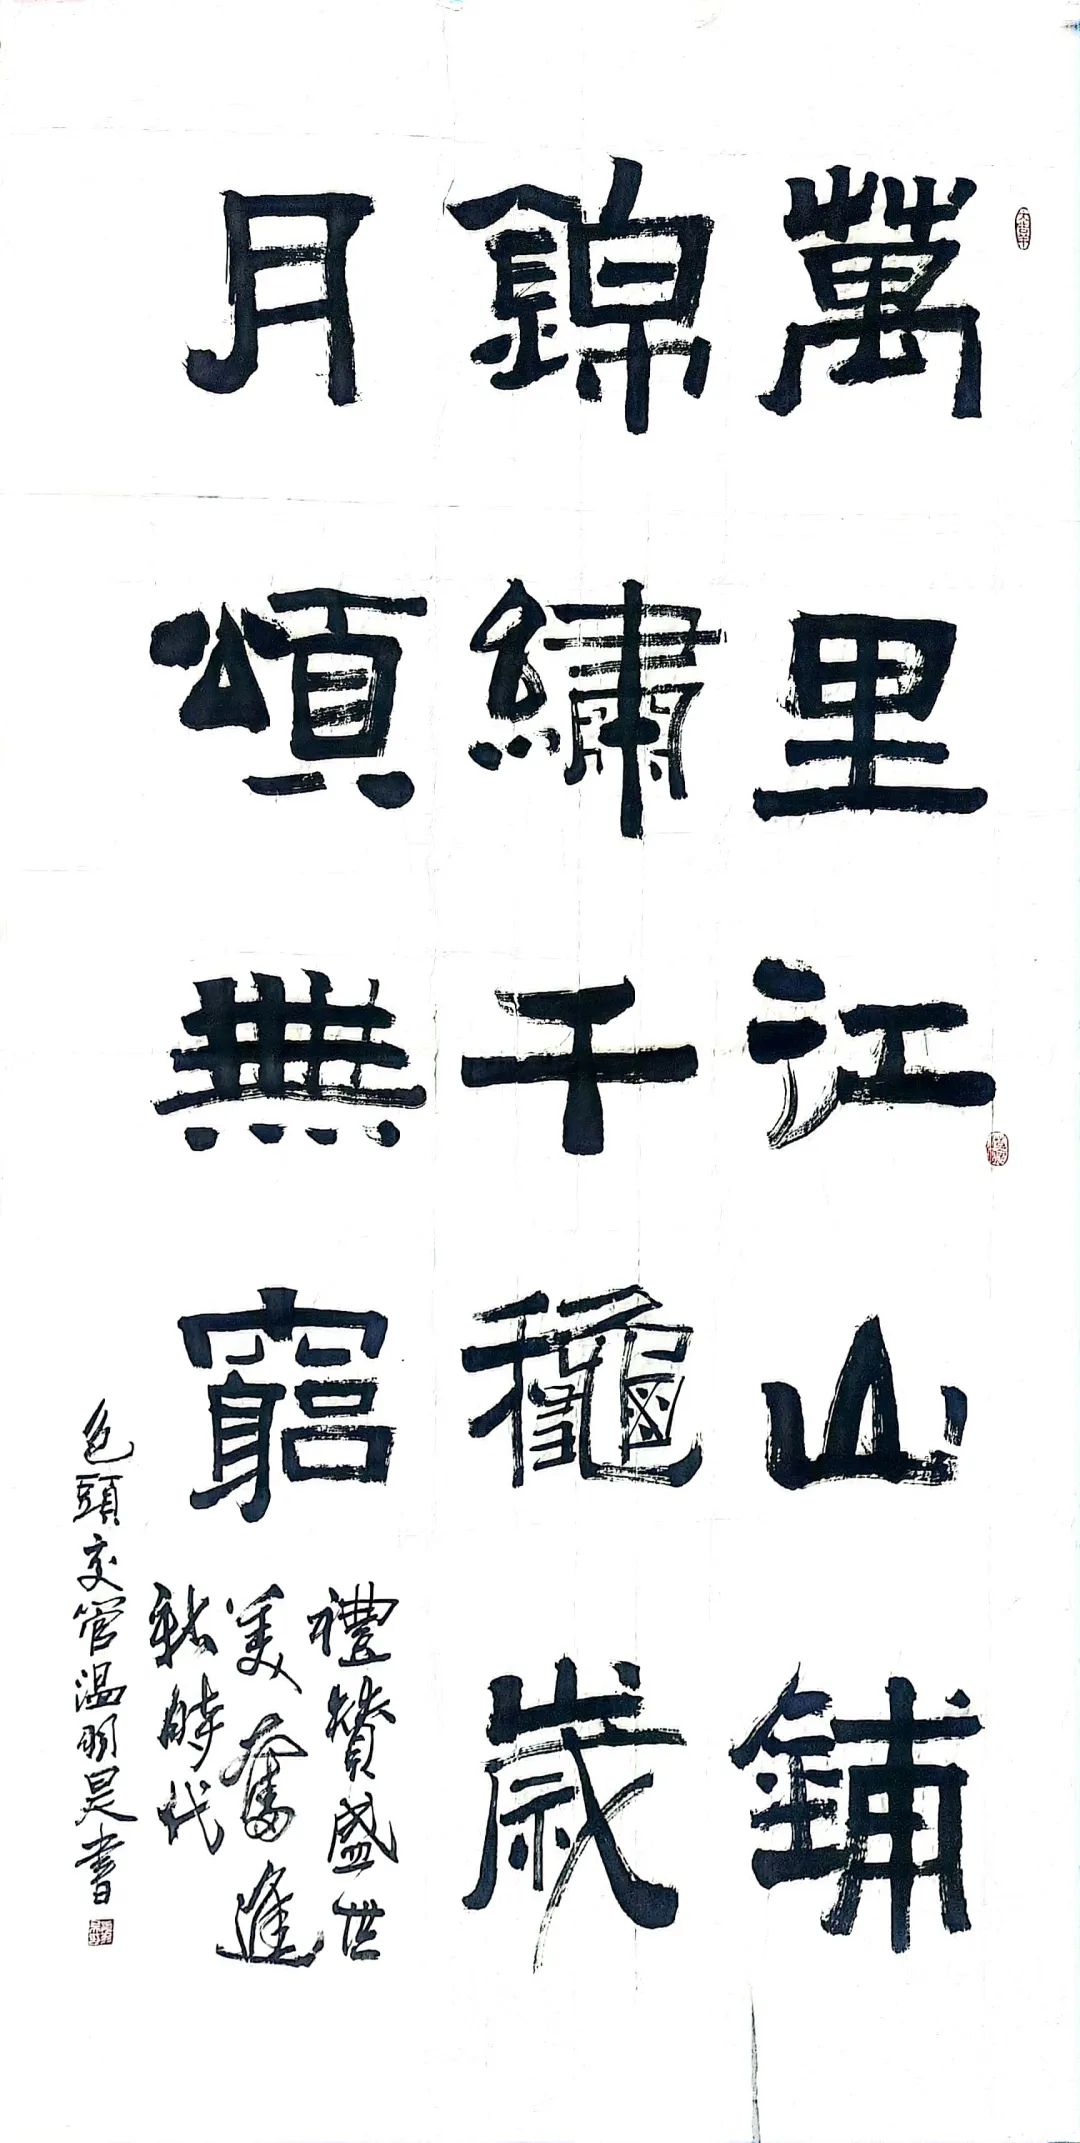 萬里江山鋪
錦繡千龝歲
月頌無窮
禮贊盛世
美奮進
新時代
包頭交管温明昊書